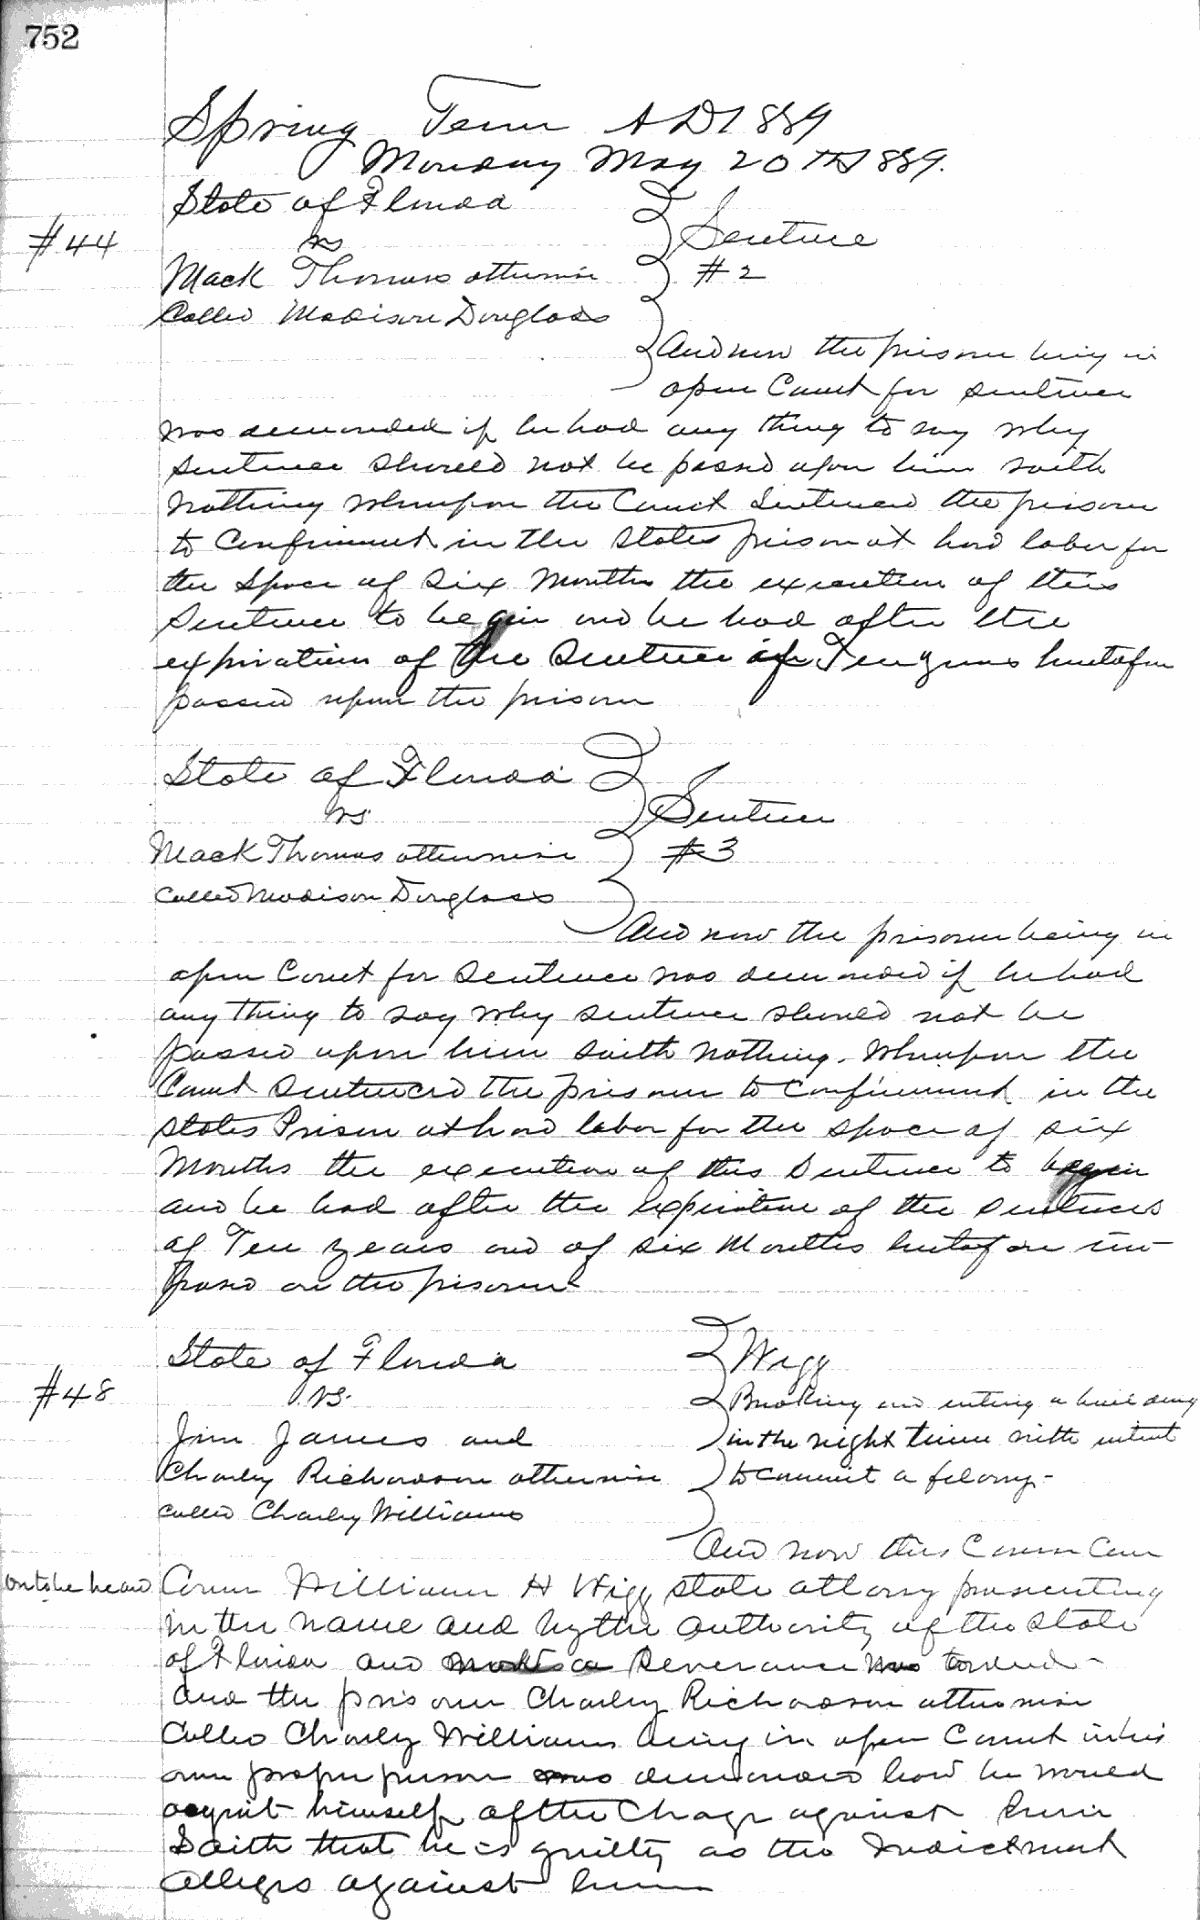 752
Spring Term A D 1889
Monday May 20TH 1889.
State of Florida
vs
#44
Sentence
Mack Thomas otherwise
#2
Called Madison Douglass
And now the prisoner being in
open Court for sentence
was demanded if he had any thing to say why
sentence should not be passed upon him saith
nothing whereupon the Court Sentenced the prisoner
to Confinement in the States prison at hard labor for
the Space of Six Months the execution of this
Sentence to begin and be had after the
expiration of the Sentence of Ten years heretofore
passed upon the prisoner
State of Florida
vs.
Sentence
Mack Thomas otherwise
#3
Called Madison Douglass
And now the prisoner being in
open Court for Sentence was demanded if he had
any thing to say why sentence should not be
passed upon him saith nothing. Whereupon the
Court Sentenced the prisoner to Confinement in the
states Prison at hard labor for the space of six
Months the execution of this Sentence to begin
and be had after the expiration of the sentences
of Ten years and of six Months heretofore im-
posed on the prisoner
State of Florida
Wigg
#48
vs.
Breaking and entering a building
Jim James and
in the night time with intent
Charley Richardson otherwise
to commit a felony-
called Charley Williams
And now this Cause Came
on to be heard Came William H Wigg state attorny prosecuting
in the name and by the authority of the State
of Florida and Severance was
And the prisoner Charley Richardson otherwise
Called Charley Williams being in open Court in his
own proper person was demanded how he would
acquit himself of the Charge against him
Saith that he is guilty as the Indictment
Alleges against him